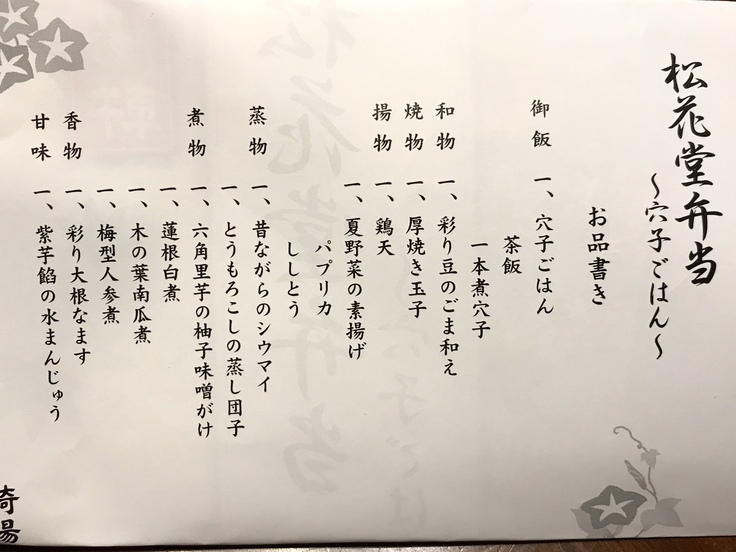 松花堂弁当
～穴子ごはん～
お品書き
御飯 一、穴子ごはん
茶飯
一本煮穴子
和物 一、彩り豆のごま和え
焼物 一、厚焼き玉子
揚物 一、鶏天
一、夏野菜の素揚げ
パプリカ
ししとう
蒸物 一、昔ながらのシウマイ
一、とうもろこしの蒸し団子
煮物 一、六角里芋の柚子味噌がけ
一、蓮根白煮
一、木の葉南瓜煮
一、梅型人参煮
香物 一、彩り大根なます
甘味 一、紫芋餡の水まんじゅう